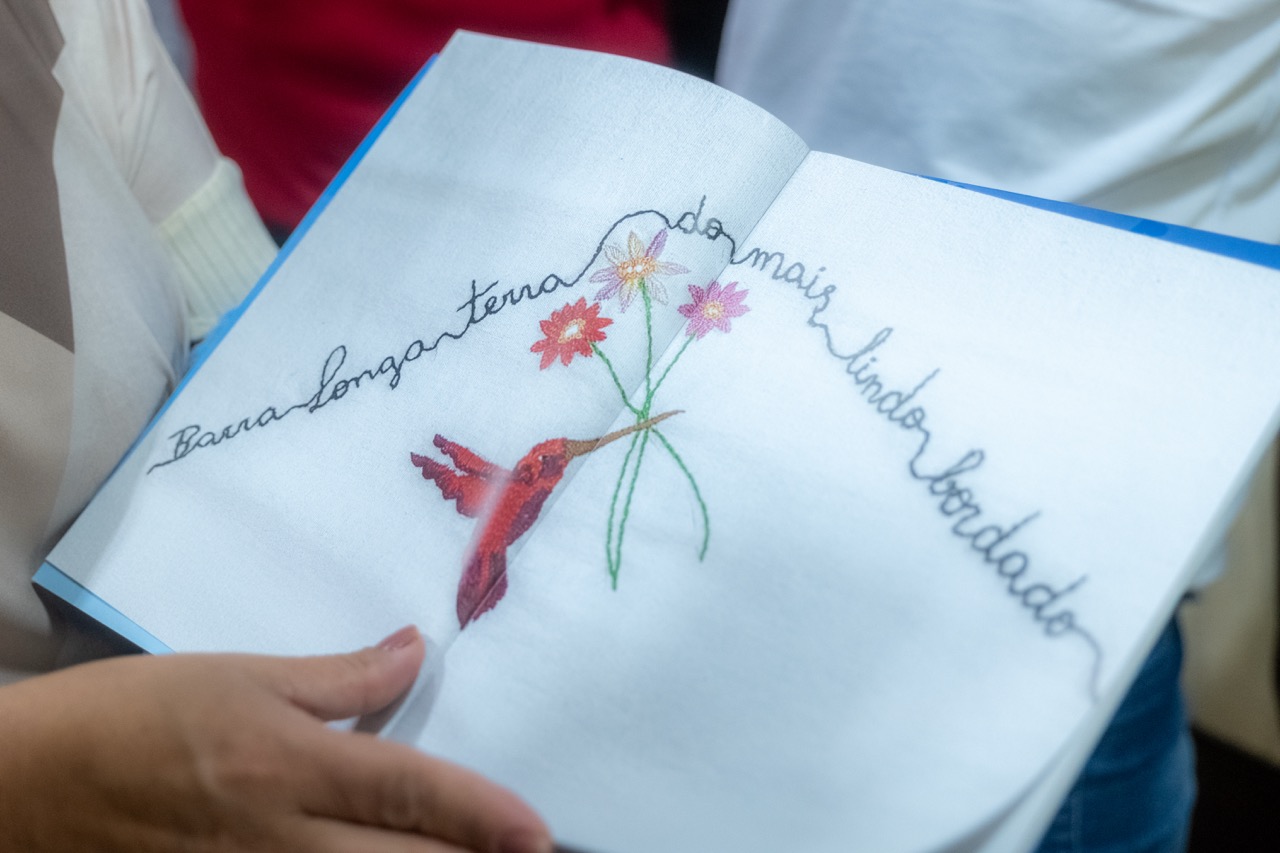 Barra Longa terra do mais lindo bordado